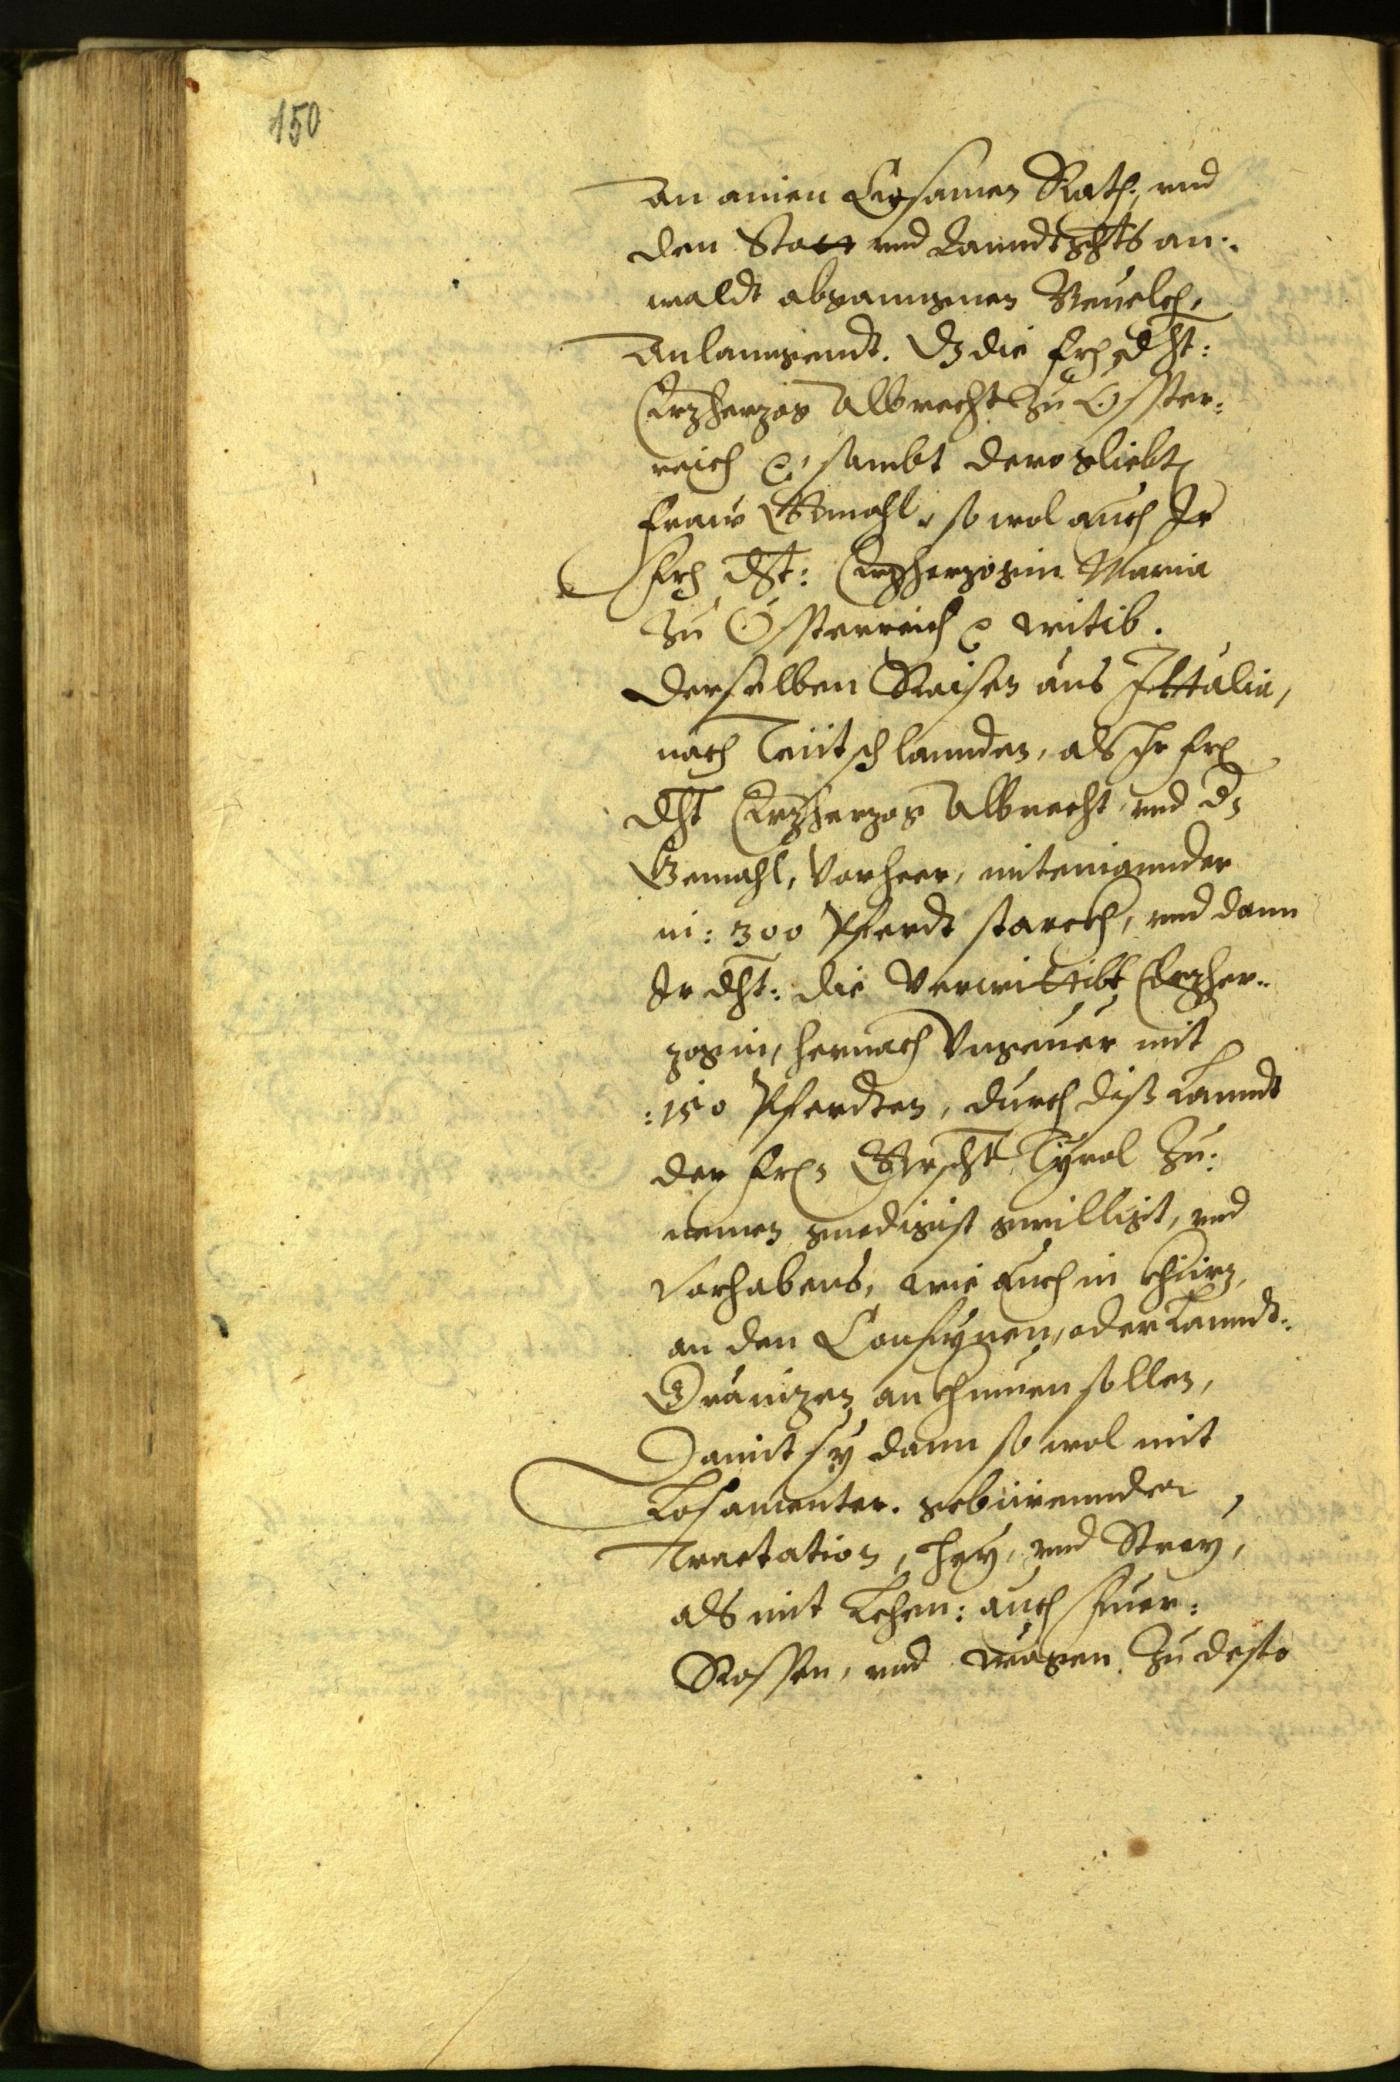 150
An ainen Ersamen Rath, vnd
den Statt vnd Lanndtgrhts an:
waldt abganngnen Beuelch,
Anlanngendt. Dz die frl. dht:
Erzherzog Albrecht zu Osster:
reich &, sambt dero gliebt
Fraw Gmahl, so wol auch Ir
frl dht: Erzherzogin Maria
zu Össterreich & witib.
derselben Raisen aus Ittalia,
nach Teütschlannden, als Ir frl
dht Erzherzog Albrecht vnd dz
Gemahl, vorheer, miteinannder
in: 300 Pferdt starckh, vnd dann
Ir dht: die verwittibt Erzher:
zogin, hernach vngeuer mit
:150 Pferdten, durch diß Lanndt
der frl. Grfscht Tyrol zu:
nemen gnedigist gwilligt, vnd
vorhabens, wie auch in khürz,
an den Confynen, oder Lanndt:
Gränizen ankhumen sollen,
Damit sy dann so wol mit
Losamenter. gebürennder
Tractation, Hey, vnd Strey,
als mit Lehen: auch Fuer:
Rossen, vnd wägen zu desto